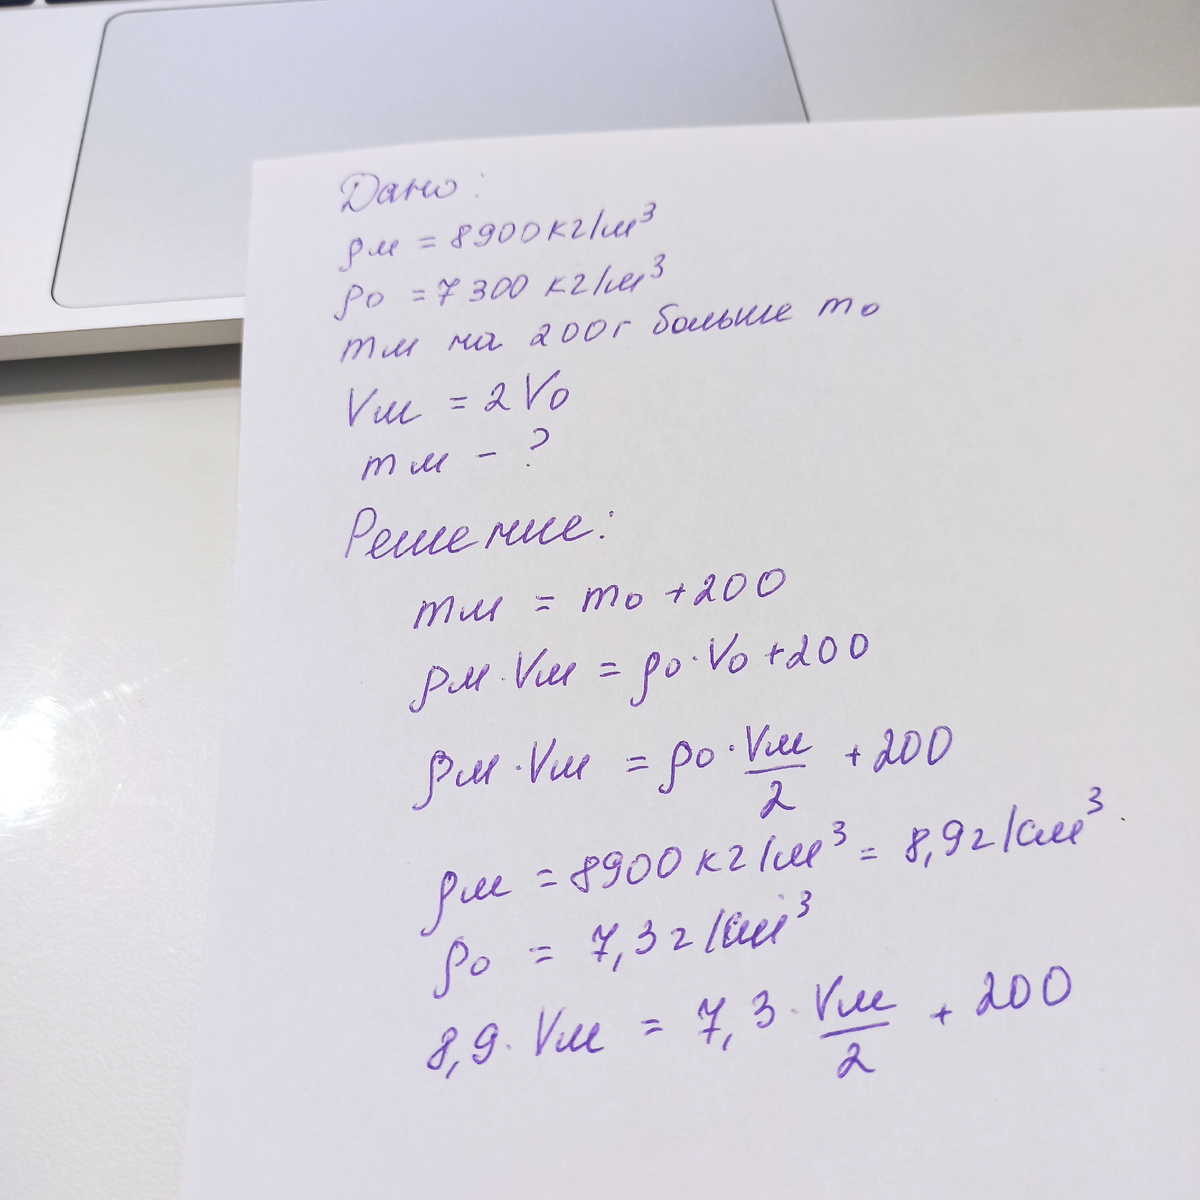 Дано:
ρм = 8900 кг/м³
ρо = 7300 кг/м³
mм на 200г больше mо
Vм = 2Vо
mм - ?
Решение:
mм = mо + 200
ρм · Vм = ρо · Vо + 200
ρм · Vм = ρо · Vм/2 + 200
ρм = 8900 кг/м³ = 8,9 г/см³
ρо = 7,3 г/см³
8,9 · Vм = 7,3 · Vм/2 + 200